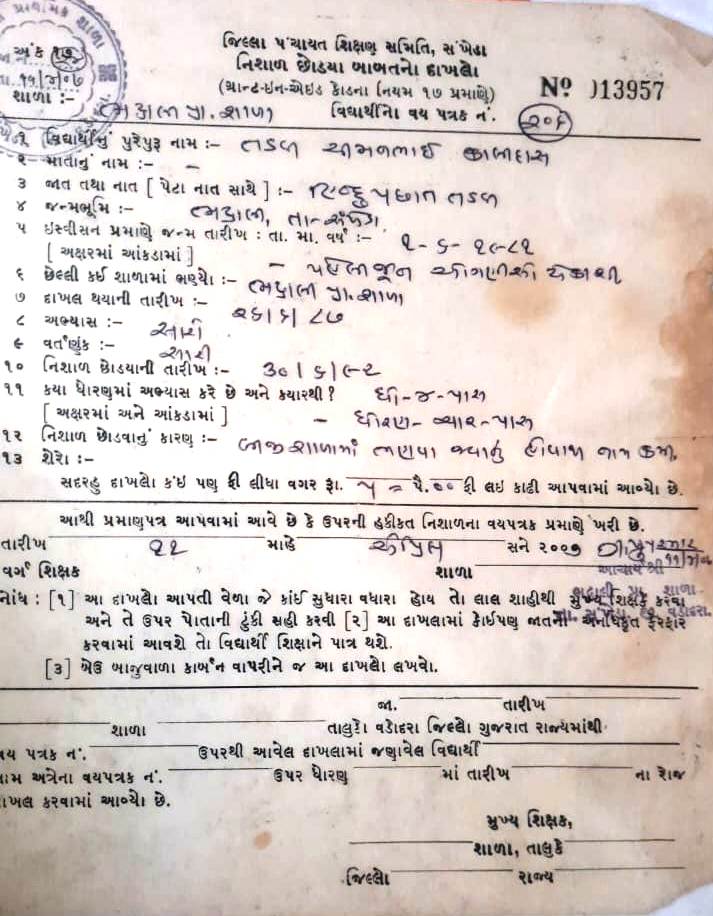 પ્રાથમિક શાળા
અંક ૧૭
તા. ૧૧/૪/૦૭
શાળા :-
જિલ્લા પંચાયત શિક્ષણ સમિતિ, સંખેડા
નિશાળ છોડયા બાબતનો દાખલો
(ગ્રાન્ટ-ઇન-એઇડ કોડના નિયમ ૧૭ પ્રમાણે)
Nº 013957
પ્રા. શાળા વિદ્યાર્થીના વય પત્રક નં. ૨૦૬
૧ વિદ્યાર્થીનું પુરેપુરૂ નામ :- તડવી ચીમનભાઇ કાલીદાસ
૨ માતાનું નામ :- -
૩ જાત તથા નાત [ પેટા નાત સાથે ] :- હિન્દુ પછાત તડવી
૪ જન્મભૂમિ :- ભદ્રાલી, તા-સંખેડા
૫ ઇસ્વીસન પ્રમાણે જન્મ તારીખ : તા. મા. વર્ષ :- ૧-૬-૧૯૮૧
[ અક્ષરમાં આંકડામાં ] - પહેલી જૂન ઓગણીસો એકાશી
૬ છેલ્લી કઈ શાળામાં ભણ્યો :- ભદ્રાલી પ્રા. શાળા
૭ દાખલ થયાની તારીખ :- ૨૬/૬/૮૭
૮ અભ્યાસ :- સારો
૯ વર્તણુંક :- સારી
૧૦ નિશાળ છોડયાની તારીખ :- ૩૦/૬/૯૨
૧૧ કયા ધોરણમાં અભ્યાસ કરે છે અને કયારથી? ધો-૪-પાસ
[ અક્ષરમાં અને આંકડામાં ] - ધોરણ-ચાર-પાસ
૧૨ નિશાળ છોડવાનું કારણ :- બીજી શાળામાં ભણવા જવાનું હોવાથી નામ કમી
૧૩ શેરો :-
સદરહુ દાખલો કંઇ પણ ફી લીધા વગર રૂા. ૫ = પૈ. ૦૦ ફી લઇ કાઢી આપવામાં આવ્યો છે.
આથી પ્રમાણપત્ર આપવામાં આવે છે કે ઉપરની હકીકત નિશાળના વયપત્રક પ્રમાણે ખરી છે.
તારીખ ૧૧ માહે એપ્રિલ સને ૨૦૦૭
૧૧/૪/૦૭
વર્ગ શિક્ષક શાળા આચાર્યશ્રી
શાળા
વડોદરા.
નોંધ : [૧] આ દાખલો આપતી વેળા જે કાંઈ સુધારા વધારા હોય તો લાલ શાહીથી મુખ્ય શિક્ષકે કરવા
અને તે ઉપર પોતાની ટુંકી સહી કરવી [૨] આ દાખલામાં કોઈપણ જાતનો અનધિકૃત ફેરફાર
કરવામાં આવશે તો વિદ્યાર્થી શિક્ષાને પાત્ર થશે.
[૩] બેઉ બાજુવાળા કાર્બન વાપરીને જ આ દાખલો લખવો.
જા. તારીખ
શાળા તાલુકો વડોદરા જિલ્લો ગુજરાત રાજ્યમાંથી
વય પત્રક નં. ઉપરથી આવેલ દાખલામાં જણાવેલ વિદ્યાર્થી
નામ અત્રેના વયપત્રક નં. ઉપર ધોરણ માં તારીખ ના રોજ
દાખલ કરવામાં આવ્યો છે.
મુખ્ય શિક્ષક,
શાળા, તાલુકે
જિલ્લો રાજ્ય